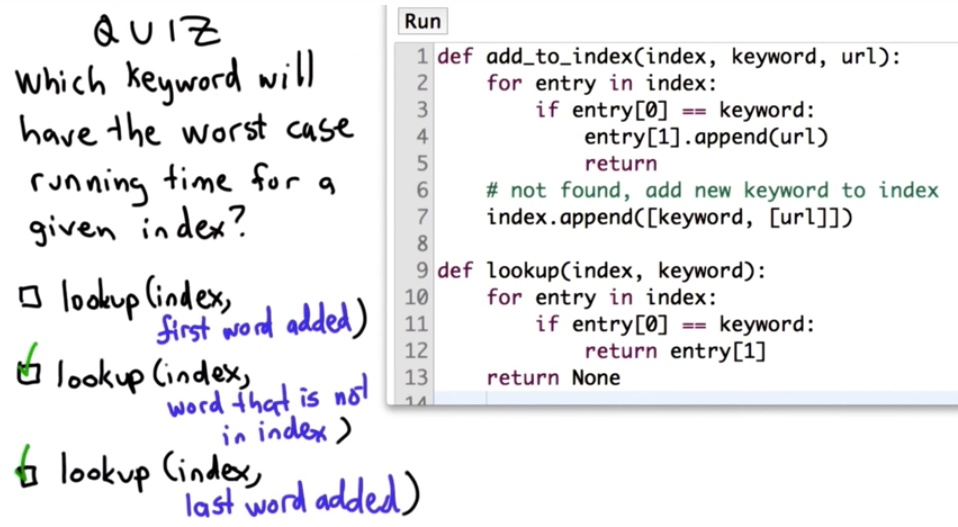 QUIZ
Which keyword will
have the worst case
running time for a
given index?
lookup (index,
first word added)
lookup (index,
word that is not
in index)
lookup (index,
last word added)
Run
1 def add_to_index(index, keyword, url):
2     for entry in index:
3         if entry[0] == keyword:
4             entry[1].append(url)
5             return
6     # not found, add new keyword to index
7     index.append([keyword, [url]])
8
9 def lookup(index, keyword):
10     for entry in index:
11         if entry[0] == keyword:
12             return entry[1]
13     return None
14